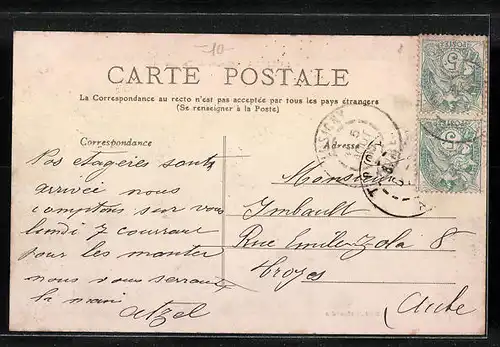 10
CARTE POSTALE
La Correspondance au recto n'est pas acceptée par tous les pays étrangers
(Se renseigner à la Poste)
Correspondance
Adresse
Vos etagères sont
arrivée nous
comptons sur vous
lundi 7 courrant
pour les monter
nous vous serrons
la main
Monsieur
Imbault
Rue Emile Zola 8
Troyes
Aube
5
5